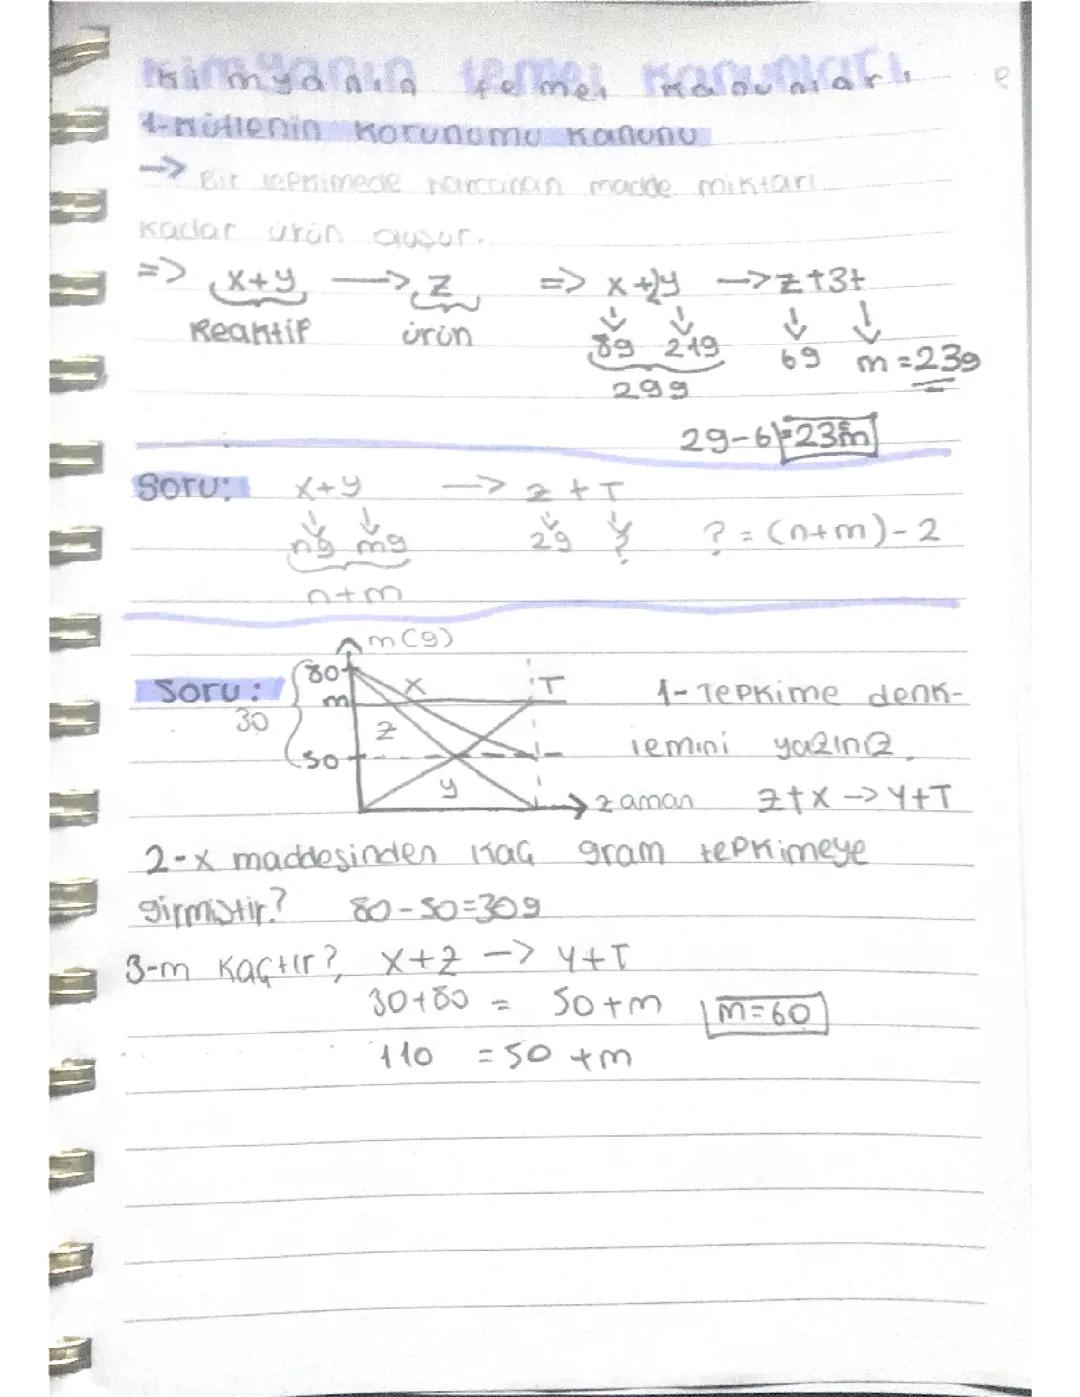 Kimyanın temel kanunları
1-Kütlenin Korunumu Kanunu
-> Bir tepkimede harcanan madde miktarı
kadar ürün oluşur.
=> x+y —> z => x+2y —> z+3t
Reaktif ürün 8g 21g 6g m=23g
29g
29-6=23m
Soru: x+y —> z+T
ng mg 2g ? ?=(n+m)-2
n+m
m(g)
Soru: 80 x T 1-Tepkime denk-
30 m z
50 y lemini yazınız.
zaman z+x —> y+T
2-x maddesinden kaç gram tepkimeye
girmiştir? 80-50=30g
3-m kaçtır? x+z —> y+T
30+80 = 50+m m=60
110 = 50+m